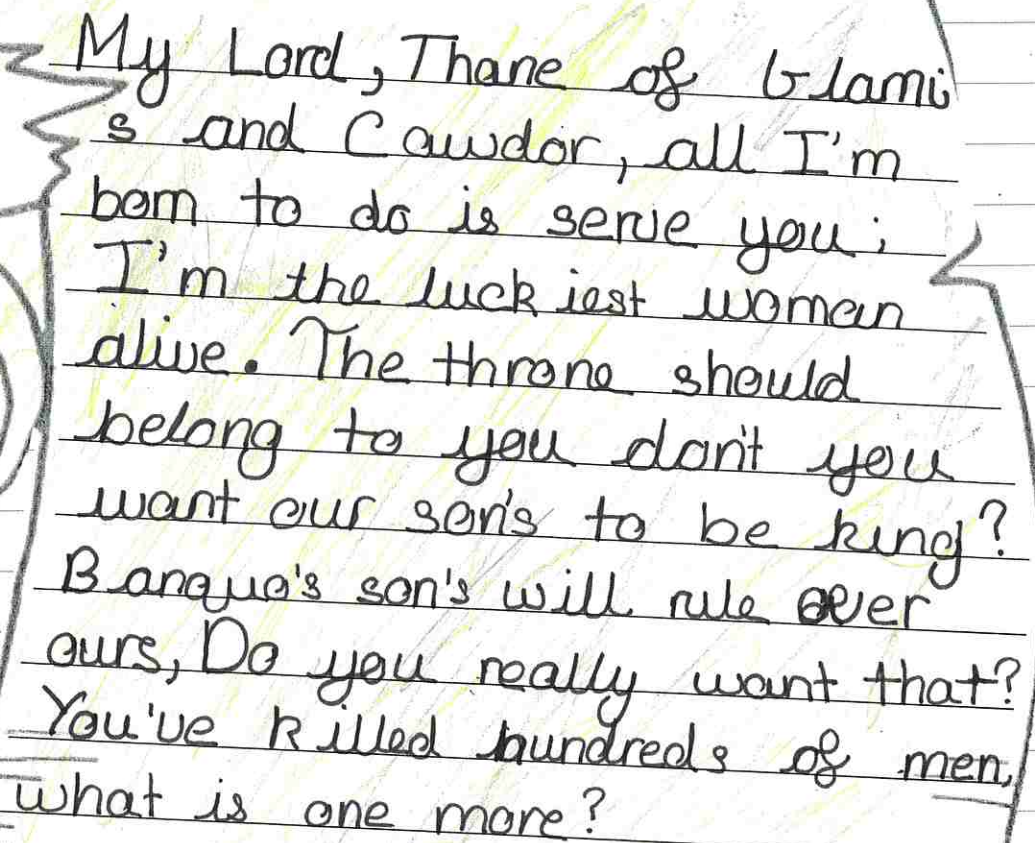 My Lord, Thane of Glami
s and Cawdor, all I'm
born to do is serve you;
I'm the luckiest woman
alive. The throne should
belong to you don't you
want our son's to be king?
Banquo's son's will rule over
ours, Do you really want that?
You've killed hundreds of men,
what is one more?